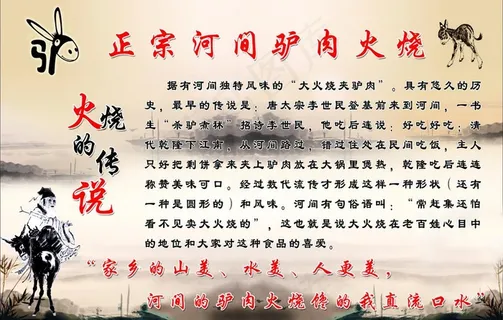 驴
正宗河间驴肉火烧
火烧的传说
据有河间独特风味的“大火烧夹驴肉”。具有悠久的历
史，最早的传说是：唐太宗李世民登基前来到河间，一书
生“杀驴煮林”招诗李世民，他吃后连说：好吃好吃；清
代乾隆下江南，从河间路过，错过住处在民间吃饭，主人
只好把剩饼拿来夹上驴肉放在大锅里煲热，乾隆吃后连连
称赞美味可口。经过数代流传才形成这样一种形状（还有
一种是圆形的）和风味。河间有句俗语叫：“常赶集还怕
看不见卖大火烧的”，这也就是说大火烧在老百姓心目中
的地位和大家对这种食品的喜爱。
“家乡的山美、水美、人更美，
河间的驴肉火烧馋的我直流口水”